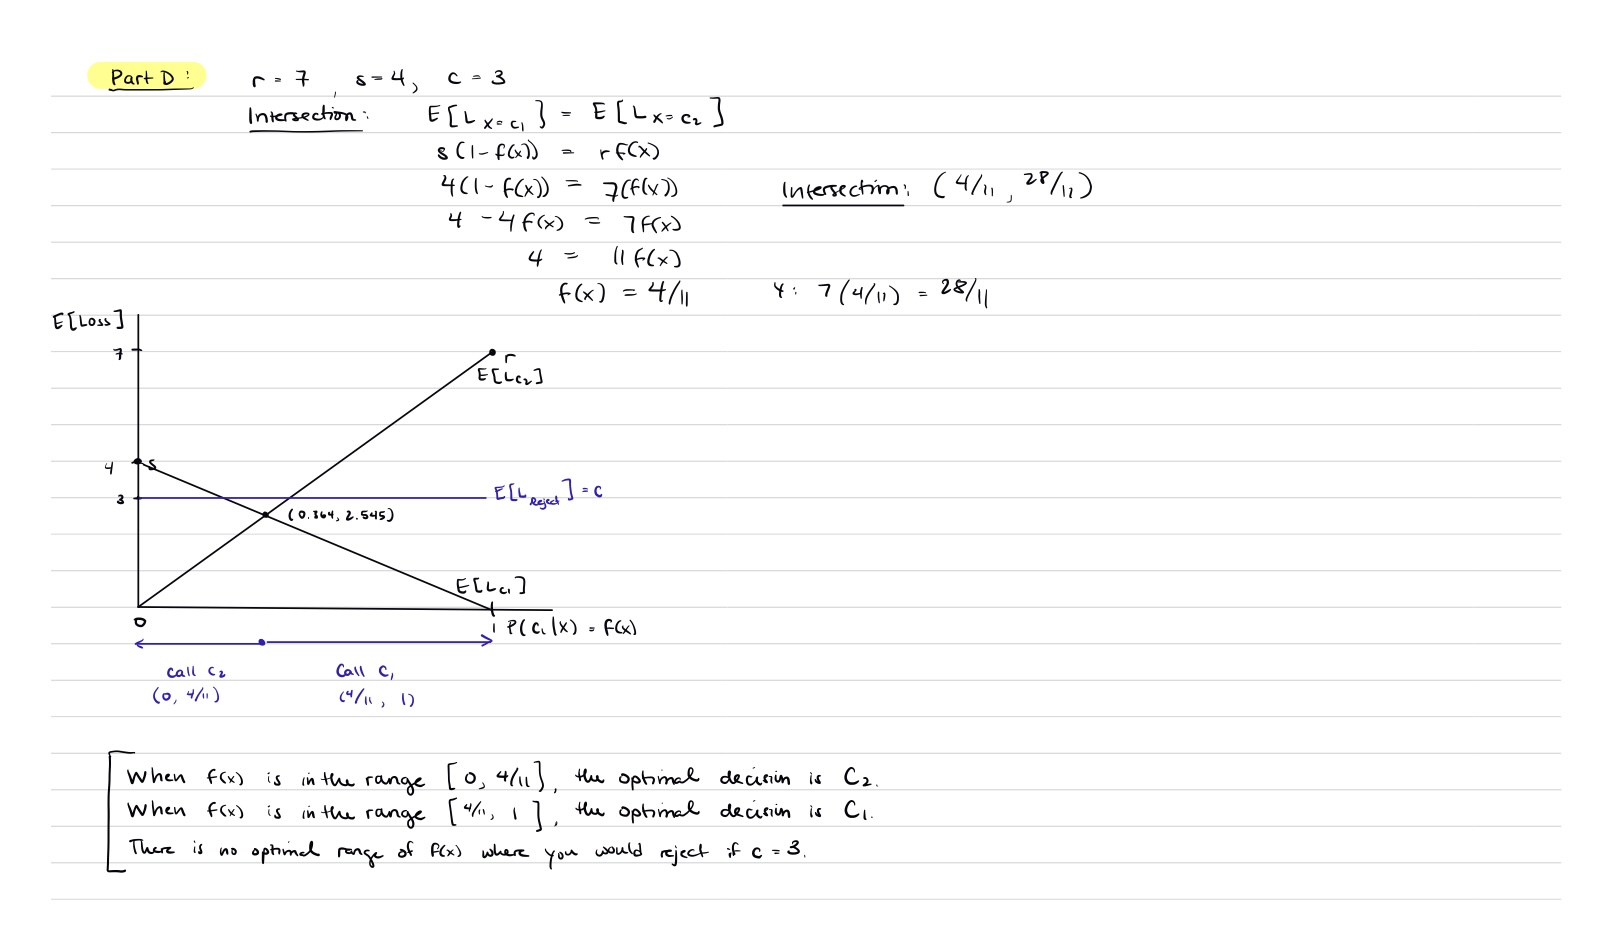 Part D: r = 7, s = 4, c = 3
Intersection: E[L x=c₁] = E[L x=c₂]
s(1-f(x)) = rf(x)
4(1-f(x)) = 7(f(x))
Intersection: (4/11, 28/11)
4 - 4f(x) = 7f(x)
4 = 11f(x)
f(x) = 4/11
y: 7(4/11) = 28/11
E[Loss]
7
r
E[Lc₂]
4
s
3
E[L Reject] = c
(0.364, 2.545)
E[Lc₁]
0
1
P(c₁|x) = f(x)
Call c₂
(0, 4/11)
Call c₁
(4/11, 1)
When f(x) is in the range [0, 4/11], the optimal decision is C₂.
When f(x) is in the range [4/11, 1], the optimal decision is C₁.
There is no optimal range of f(x) where you would reject if c = 3.